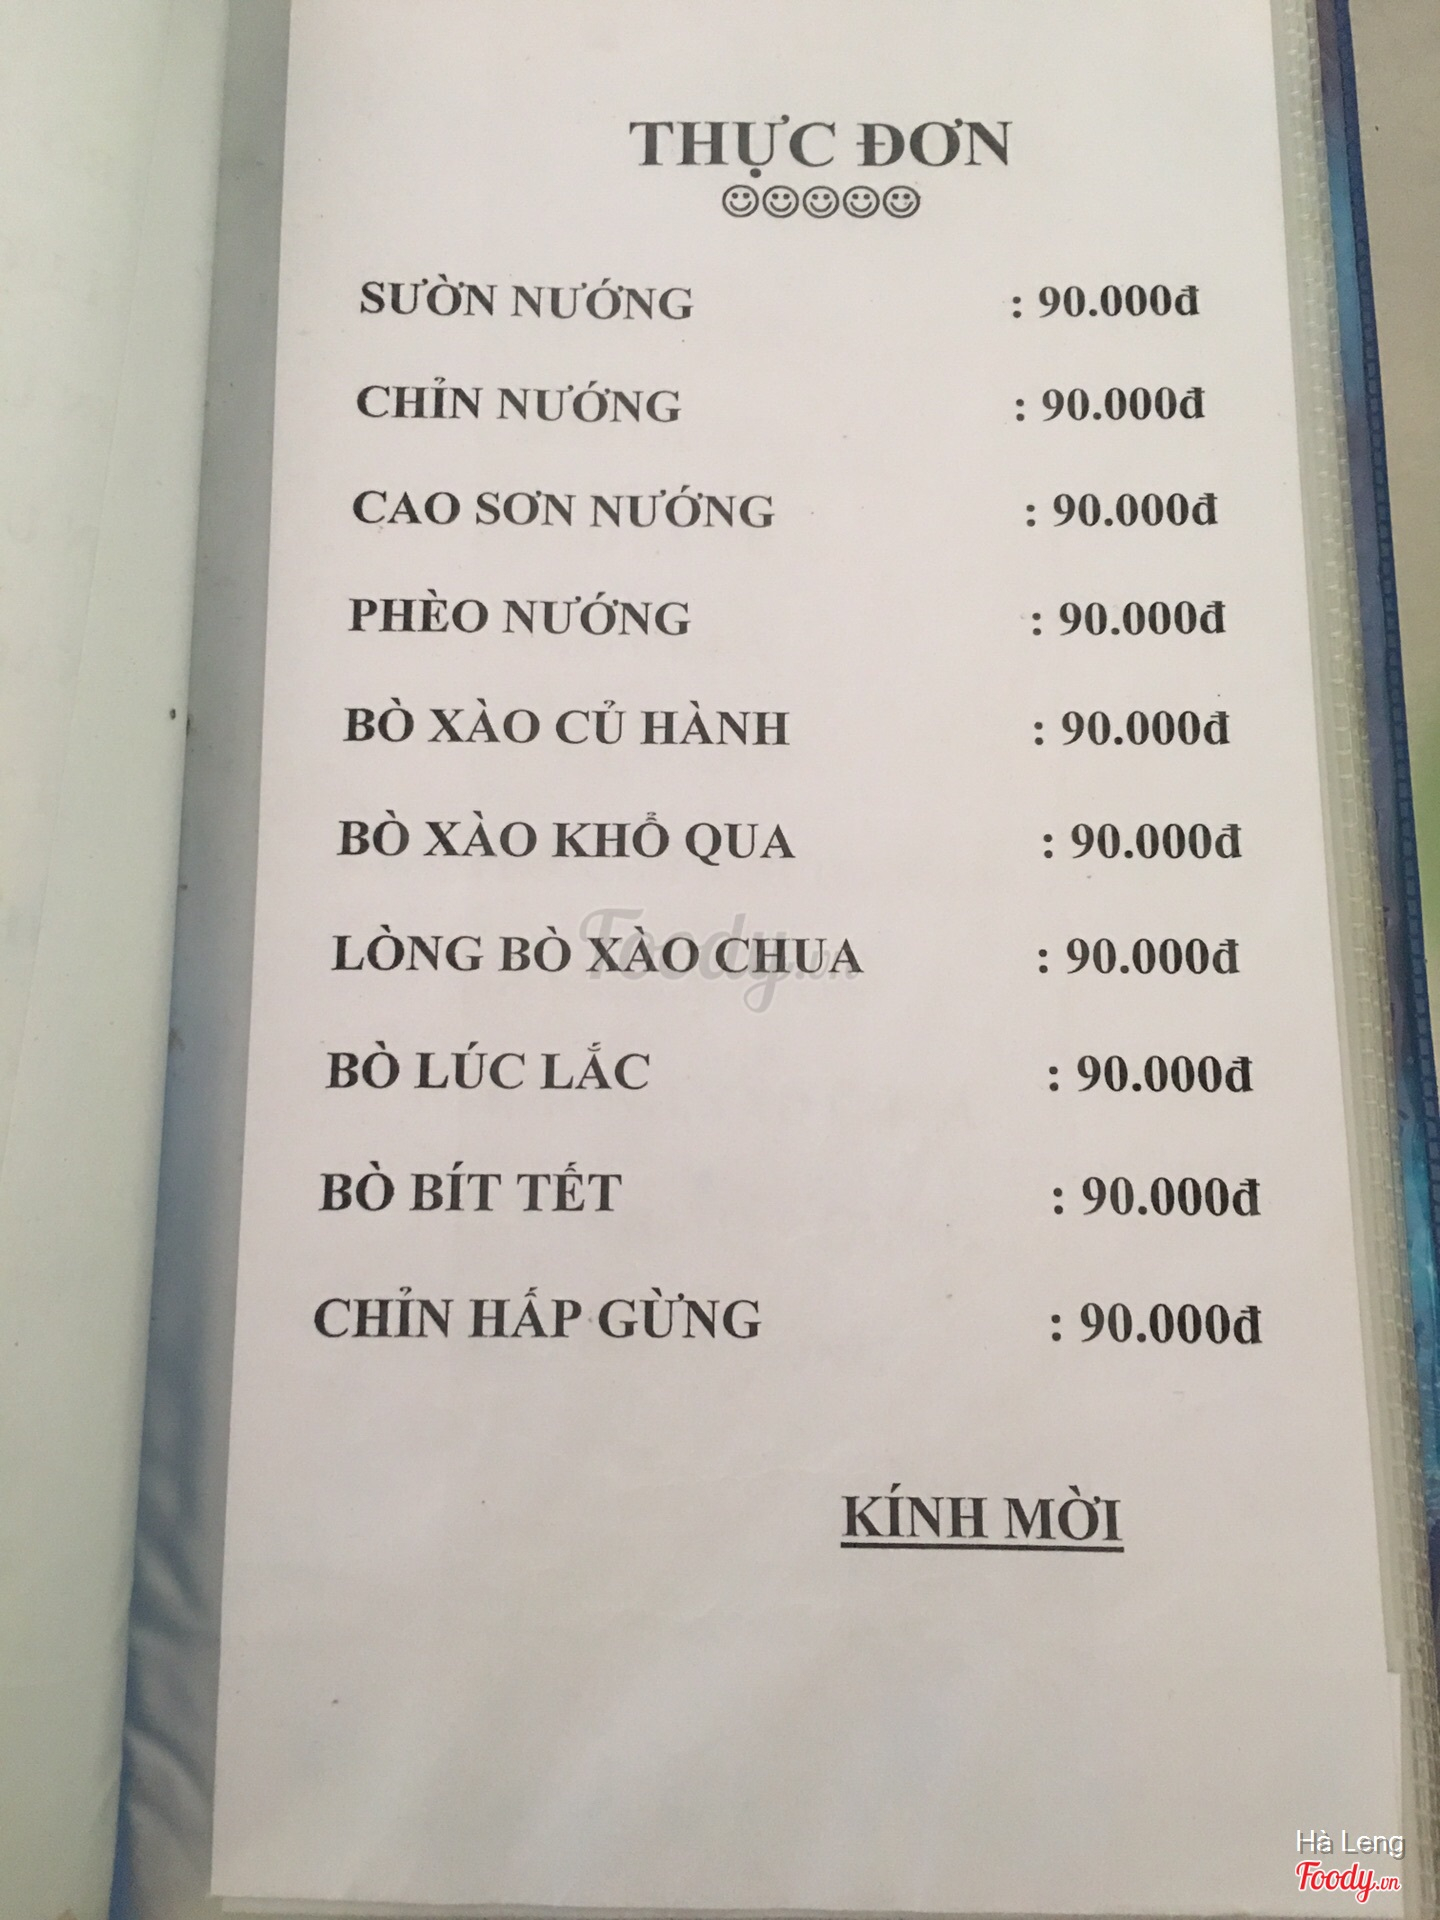 THỰC ĐƠN
☺☺☺☺☺
SƯỜN NƯỚNG : 90.000đ
CHỈN NƯỚNG : 90.000đ
CAO SƠN NƯỚNG : 90.000đ
PHÈO NƯỚNG : 90.000đ
BÒ XÀO CỦ HÀNH : 90.000đ
BÒ XÀO KHỔ QUA : 90.000đ
LÒNG BÒ XÀO CHUA : 90.000đ
Foody.vn
BÒ LÚC LẮC : 90.000đ
BÒ BÍT TẾT : 90.000đ
CHỈN HẤP GỪNG : 90.000đ
KÍNH MỜI
Hà Leng
Foody.vn